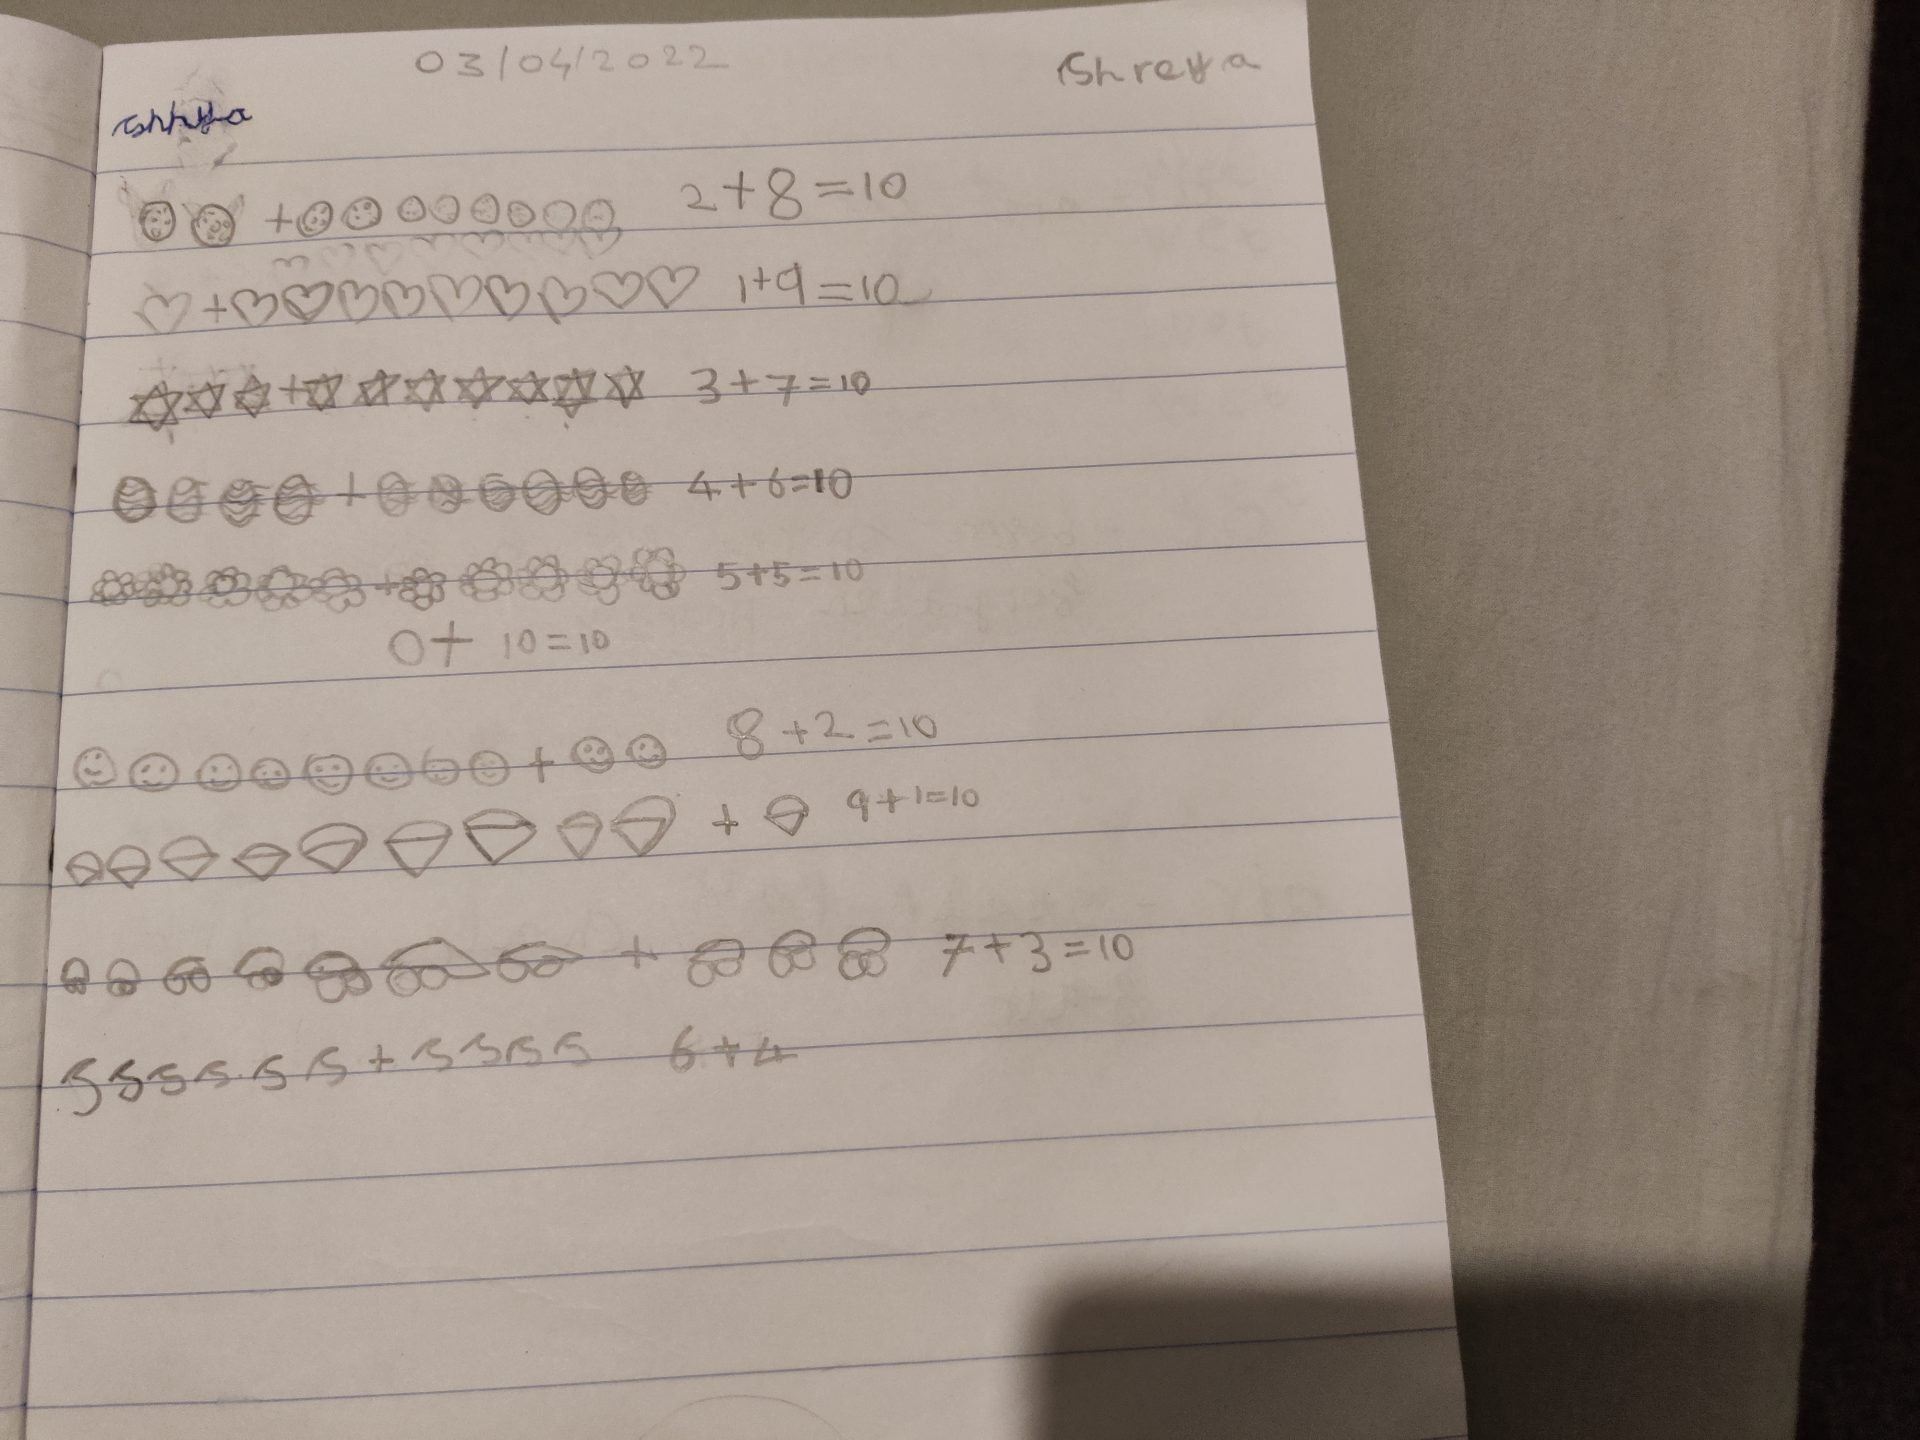 03/04/2022
Shreya
2+8=10
1+9=10
3+7=10
4+6=10
5+5=10
0+ 10=10
8+2=10
9+1=10
7+3=10
6+4